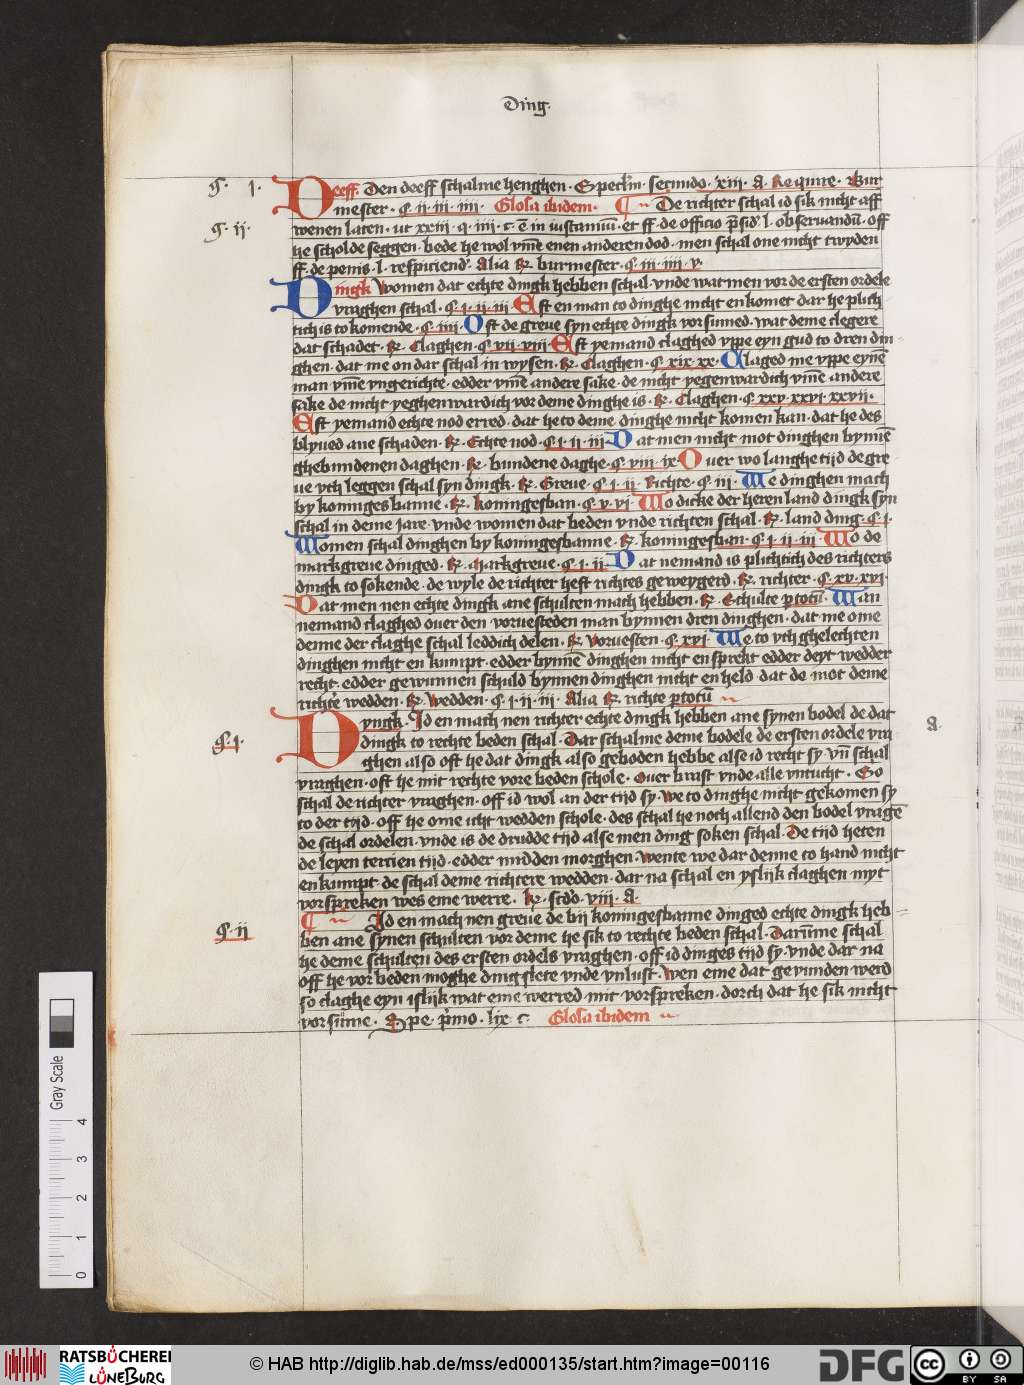 Ding.
§. 1.
Deeff. Den deeff schalme henghen. Speclm̄ secundo. xiii. a. Require. Bur
mester. §. ii. iii. iiii. Glosa ibidem. ¶ De richter schal id sik nicht aff
§. ii.
wenen laten. ut xxiii. q. iiii. c. ē in iustamm̄. et ff. de officio p̄sid. l. obseruandū. off
he scholde seggen. bede he wol vm̄e enen anderen dod. men schal one nicht twyden
ff. de penis. l. respiciend. Alia R. burmester. §. iii. iiii. v.
Dingk Women dat echte dingk hebben schal. vnde wat men vor de ersten ordele
vraghen schal. §. i. ii. iii. Eft en man to dinghe nicht en komet dar he plich
tich is to komende. §. iiii. Oft de greue syn echte dingk vorsumed. wat deme clegere
dat schadet. R. Claghen. §. vii. viii. Eft yemand claghed vppe eyn gud to dren din
ghen. dat me on dar schal in wysen. R. Claghen. §. xix. xx. Claged me vppe eynē
man vm̄e vngerichte. edder vm̄e andere sake. de nicht yegenwardich vm̄e andere
sake de nicht yeghenwardich vor deme dinghe is. R. Claghen. §. xxv. xxvi. xxvii.
Eft yemand echte nod erred. dat he to deme dinghe nicht komen kan. dat he des
blyued ane schaden. R. Echte nod. §. i. ii. iii. Dat men nicht mot dinghen bynnē
ghebundenen daghen. R. bundene daghe. §. viii. ix. Ouer wo langhe tijd de gre
ue vth leggen schal syn dingk. R. Greue. §. i. ii. Richte. §. iii. We dinghen mach
by koninges banne. R. koningesban. §. v. vi. Wo dicke der heren land dingk syn
schal in deme jare. vnde women dat beden vnde richten schal. R. land ding. §. i.
Women schal dinghen by koningesbanne. R. koningesban. §. i. ii. iii. Wo de
markgreue dinged. R. Markgreue. §. i. ii. Dat nemand is plichtich des richters
dingk to sokende. de wyle de richter heft richtes geweygerd. R. richter. §. xv. xvi.
Dat men nen echte dingk ane schulten mach hebben. R. Schulte p totū. Wan
nemand claghed ouer den voruesteden man bynnen dren dinghen. dat me ome
denne der claghe schal leddich delen. R. Voruesten. §. xvi. We to vth ghelechten
dinghen nicht en kumpt. edder bynnē dinghen nicht en sprekt edder deyt wedder
recht. edder gewunnen schuld bynnen dinghen nicht en held. dat de mot deme
richtē wedden. R. Wedden. §. i. ii. iii. Alia R. richte p totū
Dyngk. Id en mach nen richter echte dingk hebben ane synen bodel de dat
§. 1.
dingk to rechte beden schal. Dar schalme deme bodele de ersten ordele vra
a.
ghen also oft he dat dingk also geboden hebbe alse id recht sy. vn̄ schal
vraghen. oft he mit rechte vore beden schole. Ouer brust vnde alle vntucht. So
schal de richter vraghen. off id wol an der tijd sy. We to dinghe nicht gekomen sy
to der tijd. off he ome icht wedden schole. des schal he noch allend den bodel vragē
de schal ordelen. vnde is de drudde tijd alse men ding soken schal. De tijd heten
de leyen tercien tijd. edder midden morghen. Wente we dar denne to hand nicht
en kumpt. de schal deme richtere wedden. dar na schal en yslijk claghen myt
vorspreken wes eme werre. R. scdo. viii. a.
§. ii
¶ Id en mach nen greue de bij koningesbanne dinged echte dingk heb
ben ane synen schulten vor deme he sik to rechte beden schal. Darūme schal
he deme schulten des ersten ordels vraghen. off id dinges tijd sy. vnde dar na
off he vor beden moghe ding slete vnde vnlust. Wen eme dat gevunden werd
so claghe eyn islijk wat eme werred mit vorspreken. dorch dat he sik nicht
vorsūme. Spe. p̄mo. lix. c. Glosa ibidem
Gray Scale
0 1 2 3 4
RATSBÜCHEREI LÜNEBURG
© HAB http://diglib.hab.de/mss/ed000135/start.htm?image=00116
DFG
cc BY SA